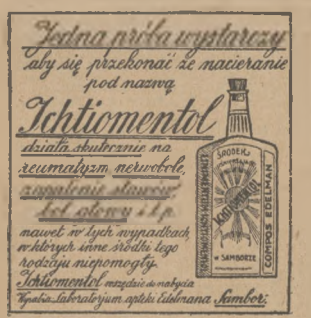 Jedna próba wystarczy
aby się przekonać że nacieranie
pod nazwą
Ichtiomentol
działa skutecznie na
reumatyzm, nerwobole,
zapalenie stawów
ból głowy i t.p.
nawet w tych wypadkach,
w których inne środki tego
rodzaju niepomogły.
Ichtiomentol wszędzie do nabycia
Wyrabia Laboratoryum apteki Edelmana Sambor.
ŚRODEK
ICHTIOMENTOL
w SAMBORZE
COMPOS EDELMAN